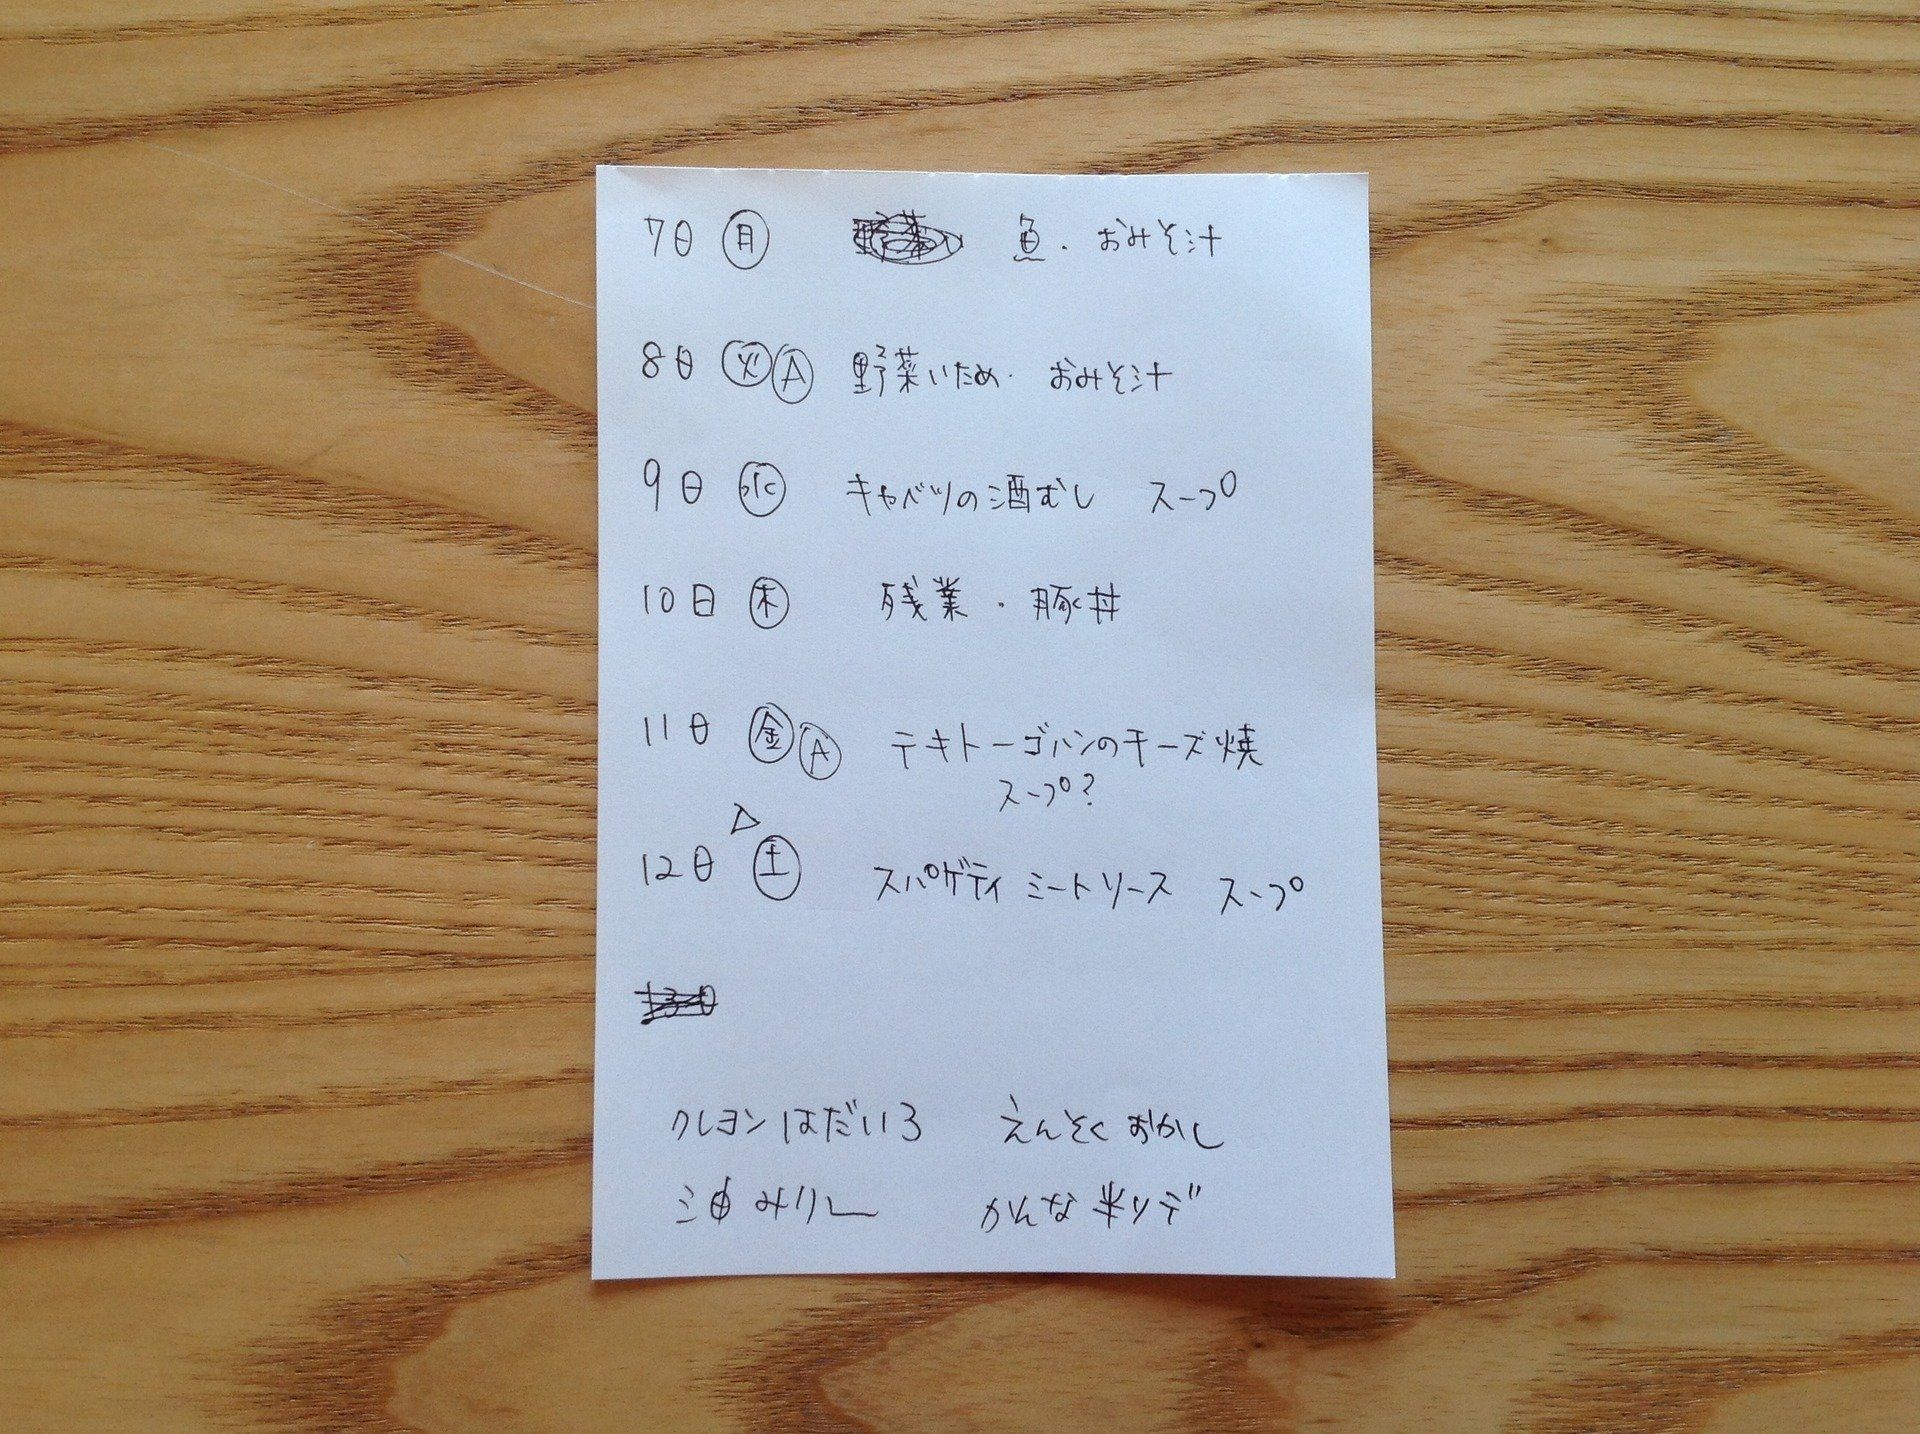 7日 ㊊ 魚・おみそ汁
8日 ㊋ Ⓐ 野菜いため・おみそ汁
9日 ㊌ キャベツの酒むし スープ
10日 ㊍ 残業・豚丼
11日 ㊎ Ⓐ テキトーゴハンのチーズ焼
スープ?
12日 ㊏ スパゲティ ミートソース スープ
クレヨン はだいろ えんそく おかし
油 みりん かんな 半ソデ